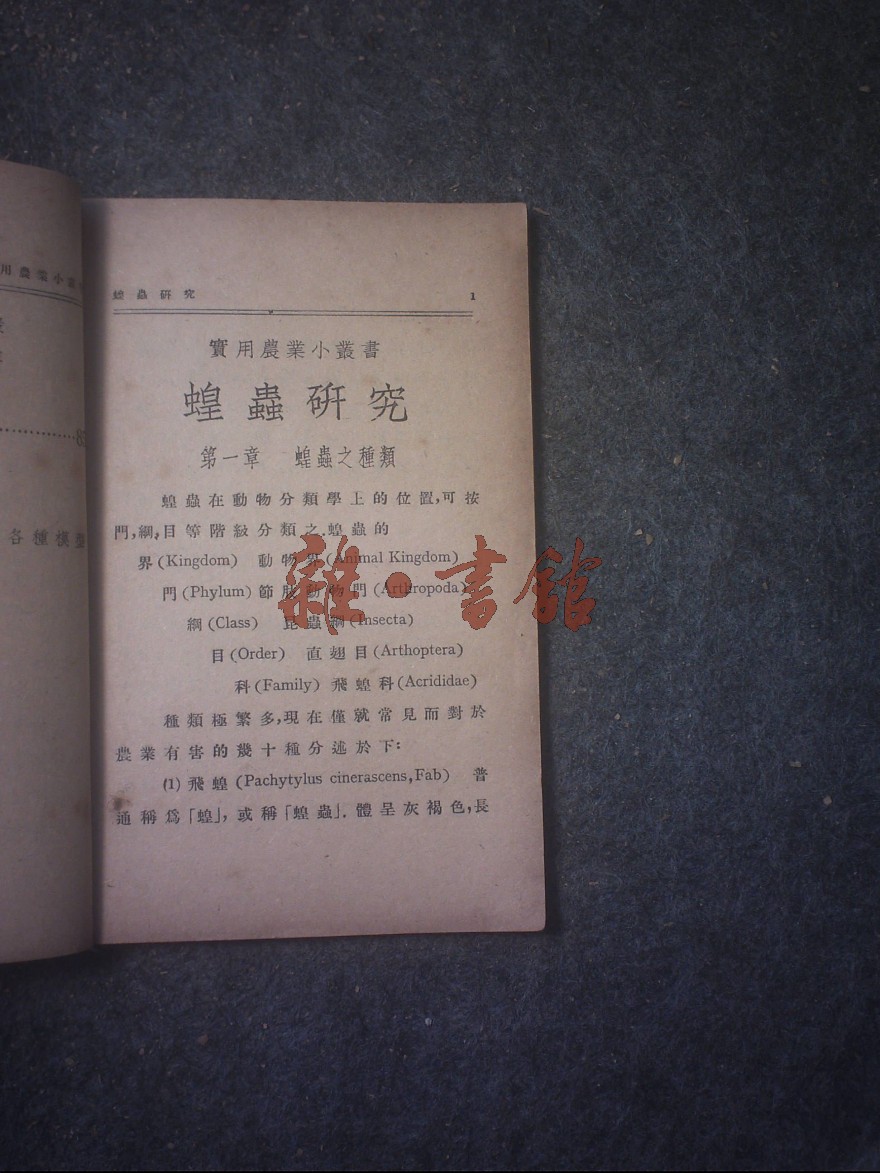 用農業小叢
各種模型
蝗蟲研究 1
實用農業小叢書
蝗蟲研究
第一章 蝗蟲之種類
蝗蟲在動物分類學上的位置,可按
門,綱,目等階級分類之.蝗蟲的
界(Kingdom) 動物界(Animal Kingdom)
門(Phylum)節肢動物門(Arthropoda)
綱(Class) 昆蟲綱(Insecta)
目(Order) 直翅目(Arthoptera)
科(Family)飛蝗科(Acrididae)
種類極繁多,現在僅就常見而對於
農業有害的幾十種分述於下:
(1)飛蝗(Pachytylus cinerascens, Fab) 普
通稱爲「蝗」,或稱「蝗蟲」.體呈灰褐色,長
雜·書館